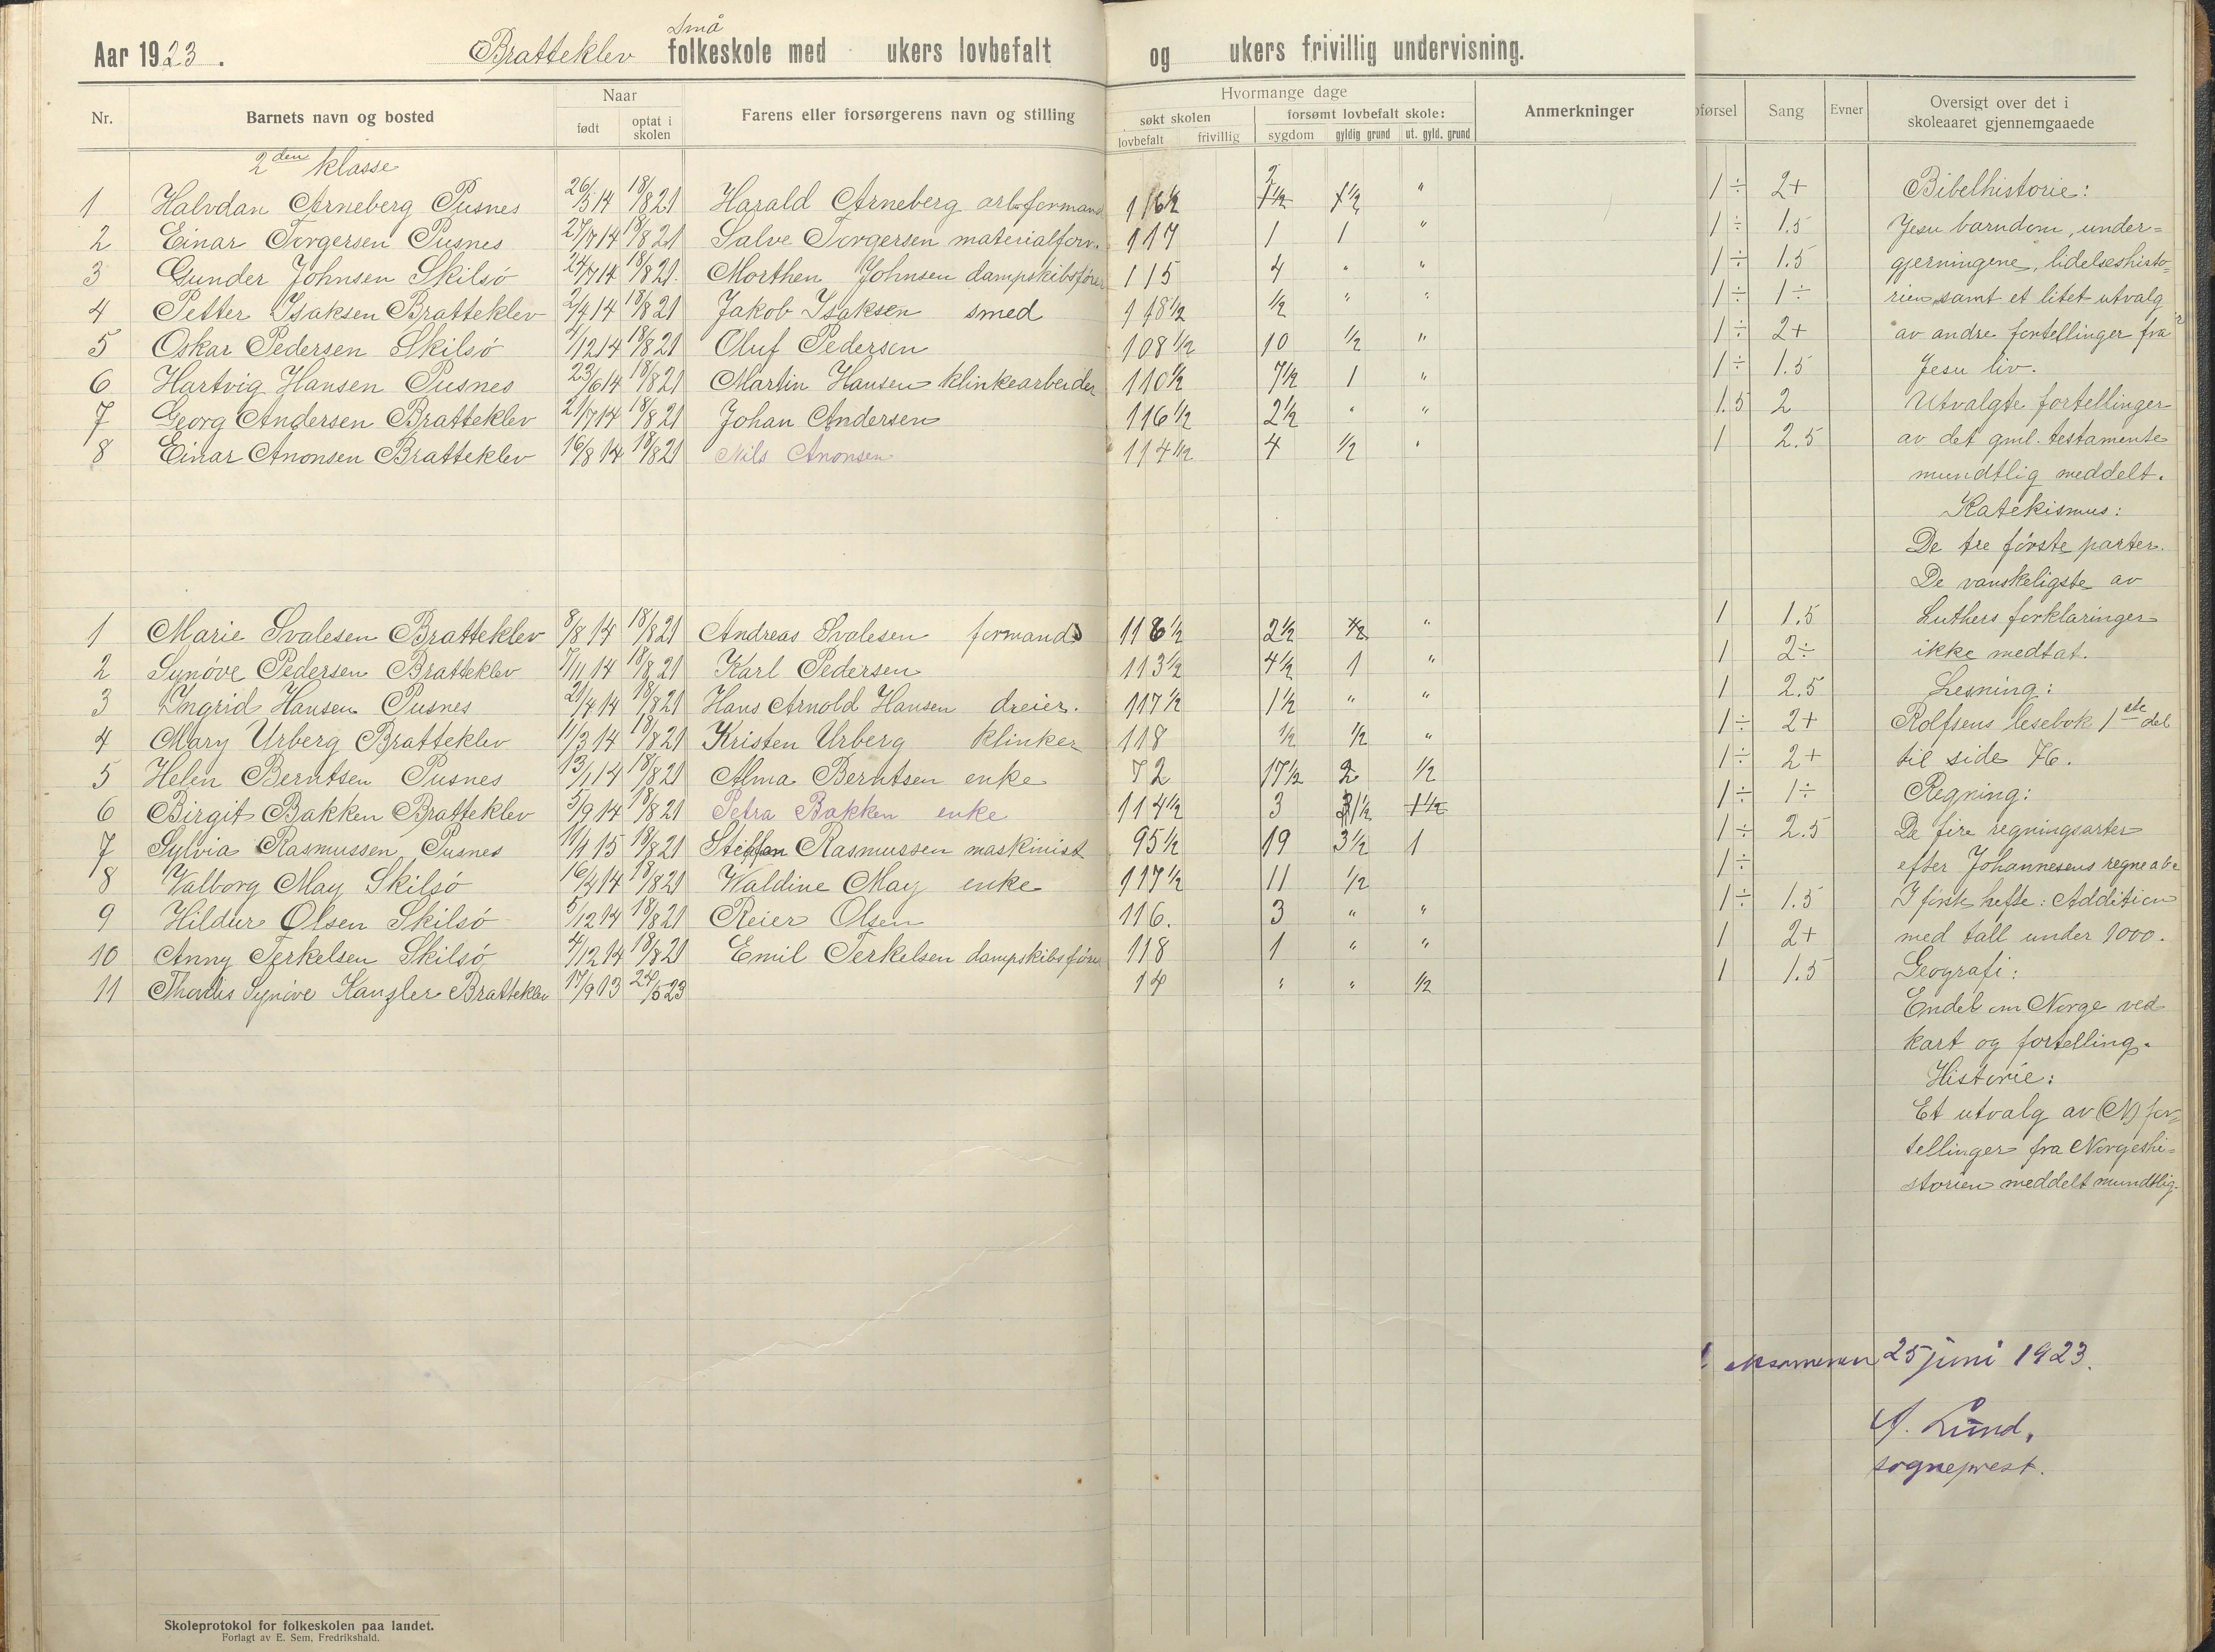 Små
Aar 1923. Bratteklev folkeskole med ukers lovbefalt og ukers frivillig undervisning.
Nr. Barnets navn og bosted Naar født optat i skolen Farens eller forsørgerens navn og stilling
Hvormange dage søkt skolen lovbefalt frivillig forsømt lovbefalt skole: sygdom gyldig grund ut. gyld. grund Anmerkninger
Sang Evner Oversigt over det i skoleaaret gjennemgaaede
2den klasse
1 Halvdan Arneberg Pusnes 26/5 14 18/8 21 Harald Arneberg arb.formand 116½ 2 1½ 1½ " 1÷ 2+
2 Einar Torgersen Pusnes 27/7 14 18/8 21 Salve Torgersen materialforv. 117 1 1 " 1÷ 1.5
3 Gunder Johnsen Skilsö 24/7 14 18/8 21. Morthen Johnsen dampskibsfører 115 4 " " 1÷ 1.5
4 Petter Isaksen Bratteklev 2/4 14 18/8 21 Jakob Isaksen smed 118½ ½ " " 1÷ 1÷
5 Oskar Pedersen Skilsö 4/12 14 18/8 21 Oluf Pedersen 108½ 10 ½ " 1÷ 2+
6 Hartvig Hansen Pusnes 23/6 14 18/8 21 Martin Hansen klinkearbeider 110½ 7½ 1 " 1÷ 1.5
7 Georg Andersen Bratteklev 21/7 14 18/8 21 Johan Andersen 116½ 2½ " " 1.5 2
8 Einar Anonsen Bratteklev 16/8 14 18/8 21 Nils Anonsen 114½ 4 ½ " 1 2.5
1 Marie Svalesen Bratteklev 8/8 14 18/8 21 Andreas Svalesen formand 116½ 2½ ½ " 1 1.5
2 Synöve Pedersen Bratteklev 7/11 14 18/8 21 Karl Pedersen 113½ 4½ 1 " 1 2÷
3 Ingrid Hansen Pusnes 21/4 14 18/8 21 Hans Arnold Hansen dreier. 117½ 1½ " " 1 2.5
4 Mary Urberg Bratteklev 11/3 14 18/8 21 Kristen Urberg klinker 118 ½ ½ " 1÷ 2+
5 Helen Berntsen Pusnes 13/1 14 18/8 21 Alma Berntsen enke 72 17½ 2 ½ 1÷ 2+
6 Birgit Bakken Bratteklev 5/9 14 18/8 21 Petra Bakken enke 114½ 3 1½ 1½ 1÷ 1÷
7 Sylvia Rasmussen Pusnes 11/1 15 18/8 21 Steffan Rasmussen maskinist 95½ 19 3½ 1 1÷ 2.5
8 Valborg May Skilsö 16/3 14 18/8 21 Waldine May enke 117½ 11 ½ 1÷
9 Hildur Olsen Skilsö 5/12 14 18/8 21 Reier Olsen 116. 3 " " 1÷ 1.5
10 Anny Terkelsen Skilsö 4/12 14 18/8 21 Emil Terkelsen dampskibsfører 118 1 " " 1 2+
11 Thordis Synöve Kanzler Bratteklev 17/9 13 24/5 23 14 " " ½ 1 1.5
Bibelhistorie:
Jesu barndom, under=
gjerningene, lidelseshisto=
rien samt et litet utvalg
av andre fortellinger fra
Jesu liv.
Utvalgte fortellinger
av det gml. testamente
mundtlig meddelt.
Katekismus:
De tre første parter.
De vanskeligste av
Luthers forklaringer
ikke medtat.
Lesning:
Rolfsens lesebok 1ste del
til side 76.
Regning:
De fire regningsarter
efter Johannesens regneabc
I første hefte: Addition
med tall under 1000.
Geografi:
Endel om Norge ved
kart og fortelling.
Historie:
Et utvalg av (N) for=
tellinger fra Norgeshi=
storien meddelt mundtlig.
eksamenen 25 juni 1923.
A. Lund,
sogneprest.
Skoleprotokol for folkeskolen paa landet.
Forlagt av E. Sem, Fredrikshald.